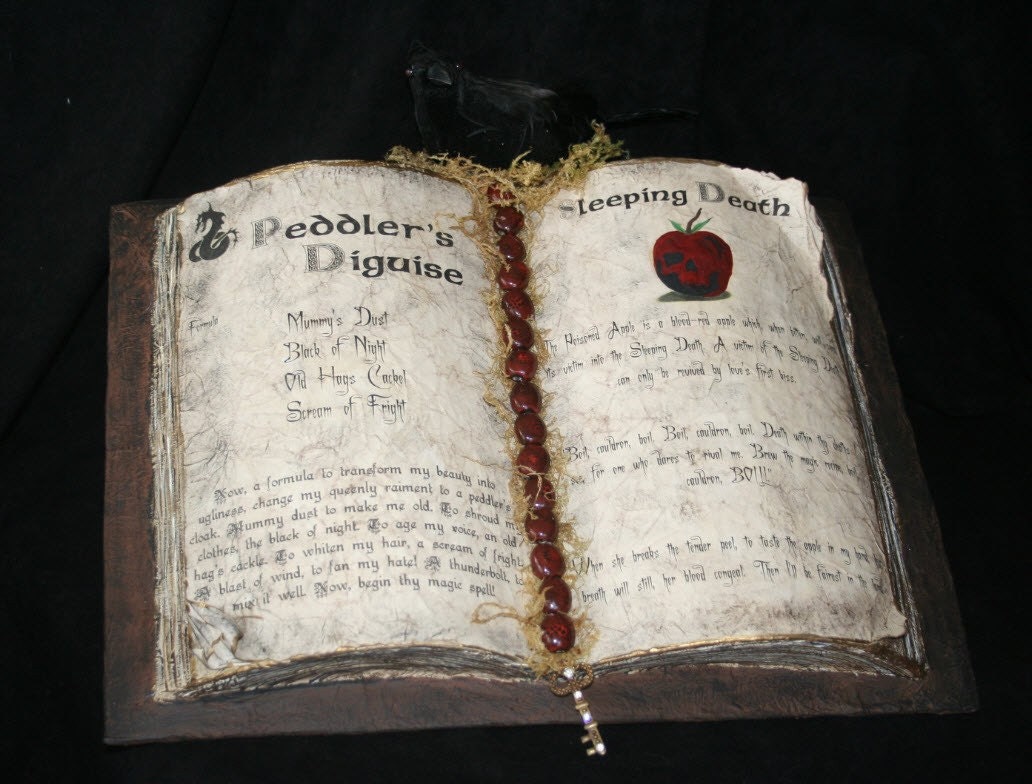 Peddler's
Diguise
Formula
Mummy's Dust
Black of Night
Old Hags Cackel
Scream of Fright
Now, a formula to transform my beauty into
ugliness, change my queenly raiment to a peddler's
cloak. Mummy dust to make me old. To shroud my
clothes, the black of night. To age my voice, an old
hag's cackle. To whiten my hair, a scream of fright.
A blast of wind, to fan my hate! A thunderbolt, to
mix it well. Now, begin thy magic spell!
Sleeping Death
The Poisoned Apple is a blood-red apple which, when bitten, will
its victim into the Sleeping Death. A victim of the Sleeping Death
can only be revived by love's first kiss.
"Boil, cauldron, boil. Boil, cauldron, boil. Death within thy depths
for one who dares to rival me. Brew the magic
cauldron, BOIL!"
When she breaks the tender peel, to taste the apple in my hand,
breath will still, her blood congeal. Then I'll be fairest in the land